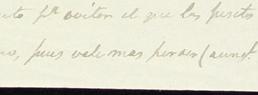 pa. evitar el que las pesetas
no, pues vale mas perder (aunq.